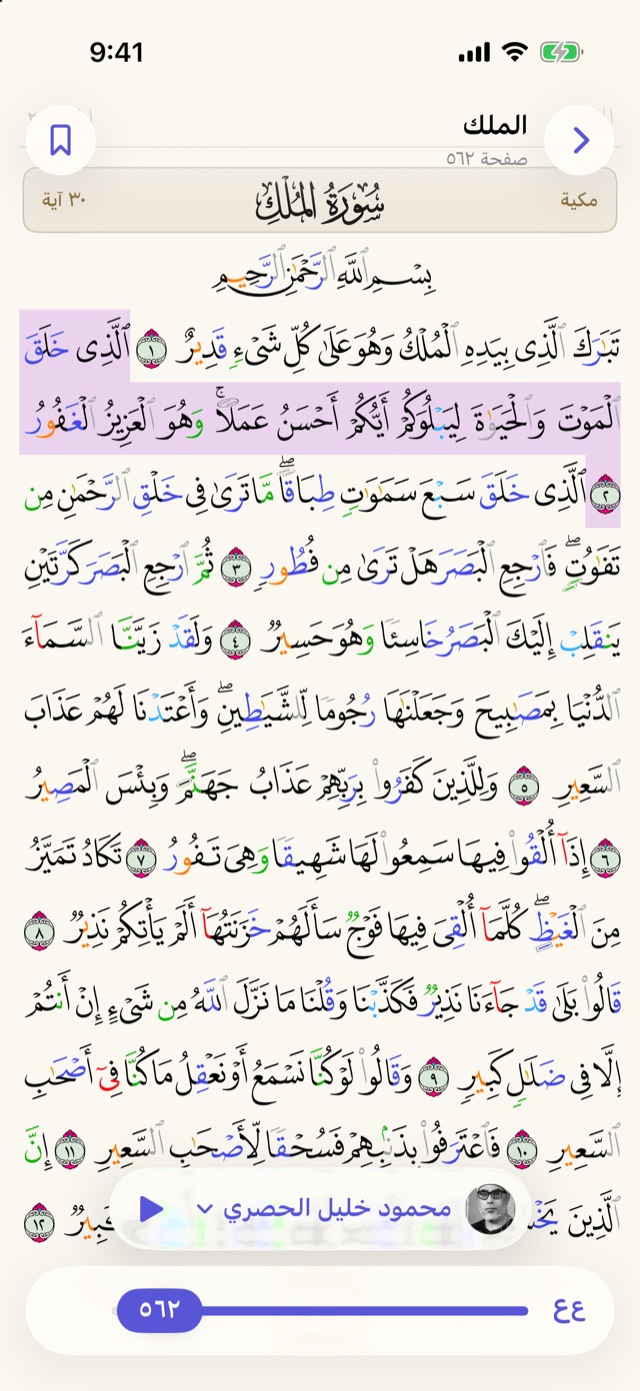 9:41
الملك
صفحة ٥٦٢
مكية
سُورَةُ المُلْكِ
٣٠ آية
بِسْمِ ٱللَّهِ ٱلرَّحْمَٰنِ ٱلرَّحِيمِ
تَبَٰرَكَ ٱلَّذِى بِيَدِهِ ٱلْمُلْكُ وَهُوَ عَلَىٰ كُلِّ شَىْءٍ قَدِيرٌ ١ ٱلَّذِى خَلَقَ
ٱلْمَوْتَ وَٱلْحَيَوٰةَ لِيَبْلُوَكُمْ أَيُّكُمْ أَحْسَنُ عَمَلًا ۚ وَهُوَ ٱلْعَزِيزُ ٱلْغَفُورُ
٢ ٱلَّذِى خَلَقَ سَبْعَ سَمَٰوَٰتٍ طِبَاقًا ۖ مَّا تَرَىٰ فِى خَلْقِ ٱلرَّحْمَٰنِ مِن
تَفَٰوُتٍ ۖ فَٱرْجِعِ ٱلْبَصَرَ هَلْ تَرَىٰ مِن فُطُورٍ ٣ ثُمَّ ٱرْجِعِ ٱلْبَصَرَ كَرَّتَيْنِ
يَنقَلِبْ إِلَيْكَ ٱلْبَصَرُ خَاسِئًا وَهُوَ حَسِيرٌ ٤ وَلَقَدْ زَيَّنَّا ٱلسَّمَآءَ
ٱلدُّنْيَا بِمَصَٰبِيحَ وَجَعَلْنَٰهَا رُجُومًا لِّلشَّيَٰطِينِ ۖ وَأَعْتَدْنَا لَهُمْ عَذَابَ
ٱلسَّعِيرِ ٥ وَلِلَّذِينَ كَفَرُوا۟ بِرَبِّهِمْ عَذَابُ جَهَنَّمَ ۖ وَبِئْسَ ٱلْمَصِيرُ
٦ إِذَآ أُلْقُوا۟ فِيهَا سَمِعُوا۟ لَهَا شَهِيقًا وَهِىَ تَفُورُ ٧ تَكَادُ تَمَيَّزُ
مِنَ ٱلْغَيْظِ ۖ كُلَّمَآ أُلْقِىَ فِيهَا فَوْجٌ سَأَلَهُمْ خَزَنَتُهَآ أَلَمْ يَأْتِكُمْ نَذِيرٌ ٨
قَالُوا۟ بَلَىٰ قَدْ جَآءَنَا نَذِيرٌ فَكَذَّبْنَا وَقُلْنَا مَا نَزَّلَ ٱللَّهُ مِن شَىْءٍ إِنْ أَنتُمْ
إِلَّا فِى ضَلَٰلٍ كَبِيرٍ ٩ وَقَالُوا۟ لَوْ كُنَّا نَسْمَعُ أَوْ نَعْقِلُ مَا كُنَّا فِىٓ أَصْحَٰبِ
ٱلسَّعِيرِ ١٠ فَٱعْتَرَفُوا۟ بِذَنۢبِهِمْ فَسُحْقًا لِّأَصْحَٰبِ ٱلسَّعِيرِ ١١ إِنَّ
ٱلَّذِينَ ١٢
محمود خليل الحصري
عع
٥٦٢